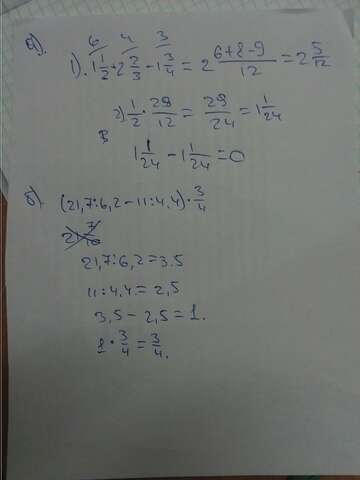 а).
6 4 3
1). 1 1/2 + 2 2/3 - 1 3/4 = 2 (6+8-9)/12 = 2 5/12
2) 1/2 · 29/12 = 29/24 = 1 1/24
1 1/24 - 1 1/24 = 0
б) (21,7:6,2-11:4,4)·3/4
21,7:6,2=3.5
11:4,4=2,5
3,5-2,5=1.
1·3/4=3/4.